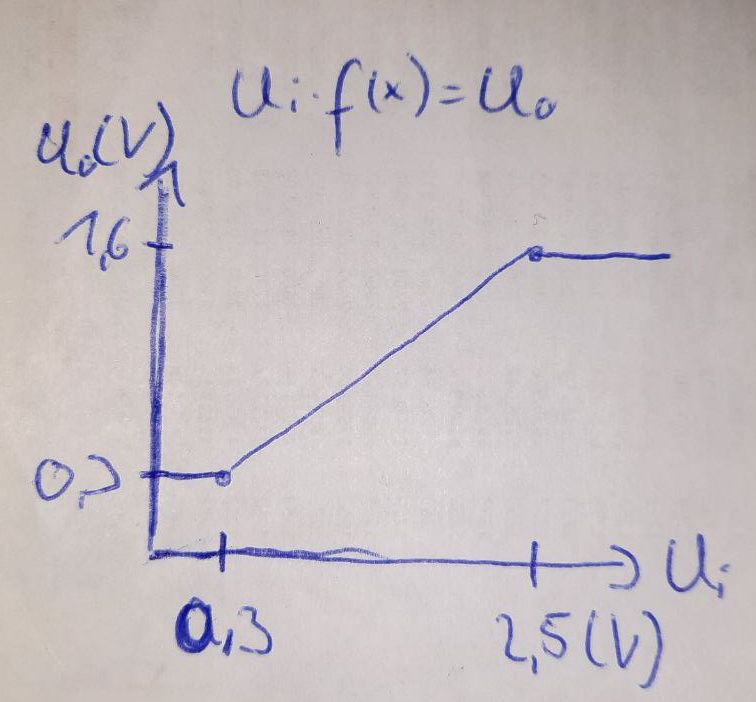 Ui·f(x)=Uo
Uo(V)
1,6
0,3
0,3
2,5(V)
Ui